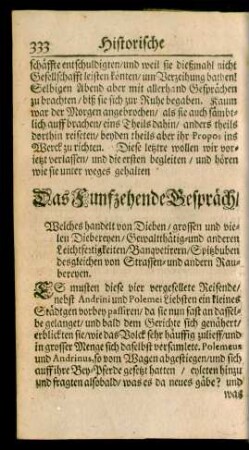 333 Historische
schäffte entschuldigten/ und weil sie dießmahl nicht
Gesellschafft leisten könten/ um Verzeihung bathen!
Selbigen Abend aber mit allerhand Gesprächen
zu brachten/ biß sie sich zur Ruhe begaben. Kaum
war der Morgen angebrochen/ als sie auch sämbt-
lich auff brachen/ eins Theils dahin/ anders theils
dorthin reiseten/ beyden theils aber ihr Propos ins
Werck zu richten. Diese letzte wollen wir vor-
ietzt verlassen/ und die ersten begleiten/ und hören
wie sie unter weges gehalten
Das Funfzehende Gespräch/
Welches handelt von Dieben/ grossen und vie-
len Diebereyen/ Gewaltthätig-und anderen
Leichtfertigkeiten/ Banqvetirern/ Spitzbuben
desgleichen von Strassen-und andern Rau-
bereyen.
ES musten diese vier vergesellete Reisende/
nebst Andrini und Polemei Liebsten ein kleines
Städtgen vorbey passiren/ da sie nun fast an dassel-
be gelanget/ und bald dem Gerichte sich genähert/
erblickten sie/ wie das Volck sehr häuffig zulieff/ und
in grosser Menge sich daselbst versamlete. Polemeus
und Andrinus, so vom Wagen abgestiegen/ und sich
auff ihre Bey-Pferde gesetzt hatten / eyleten hinzu
und fragten alsobald/ was es da neues gäbe? und
was